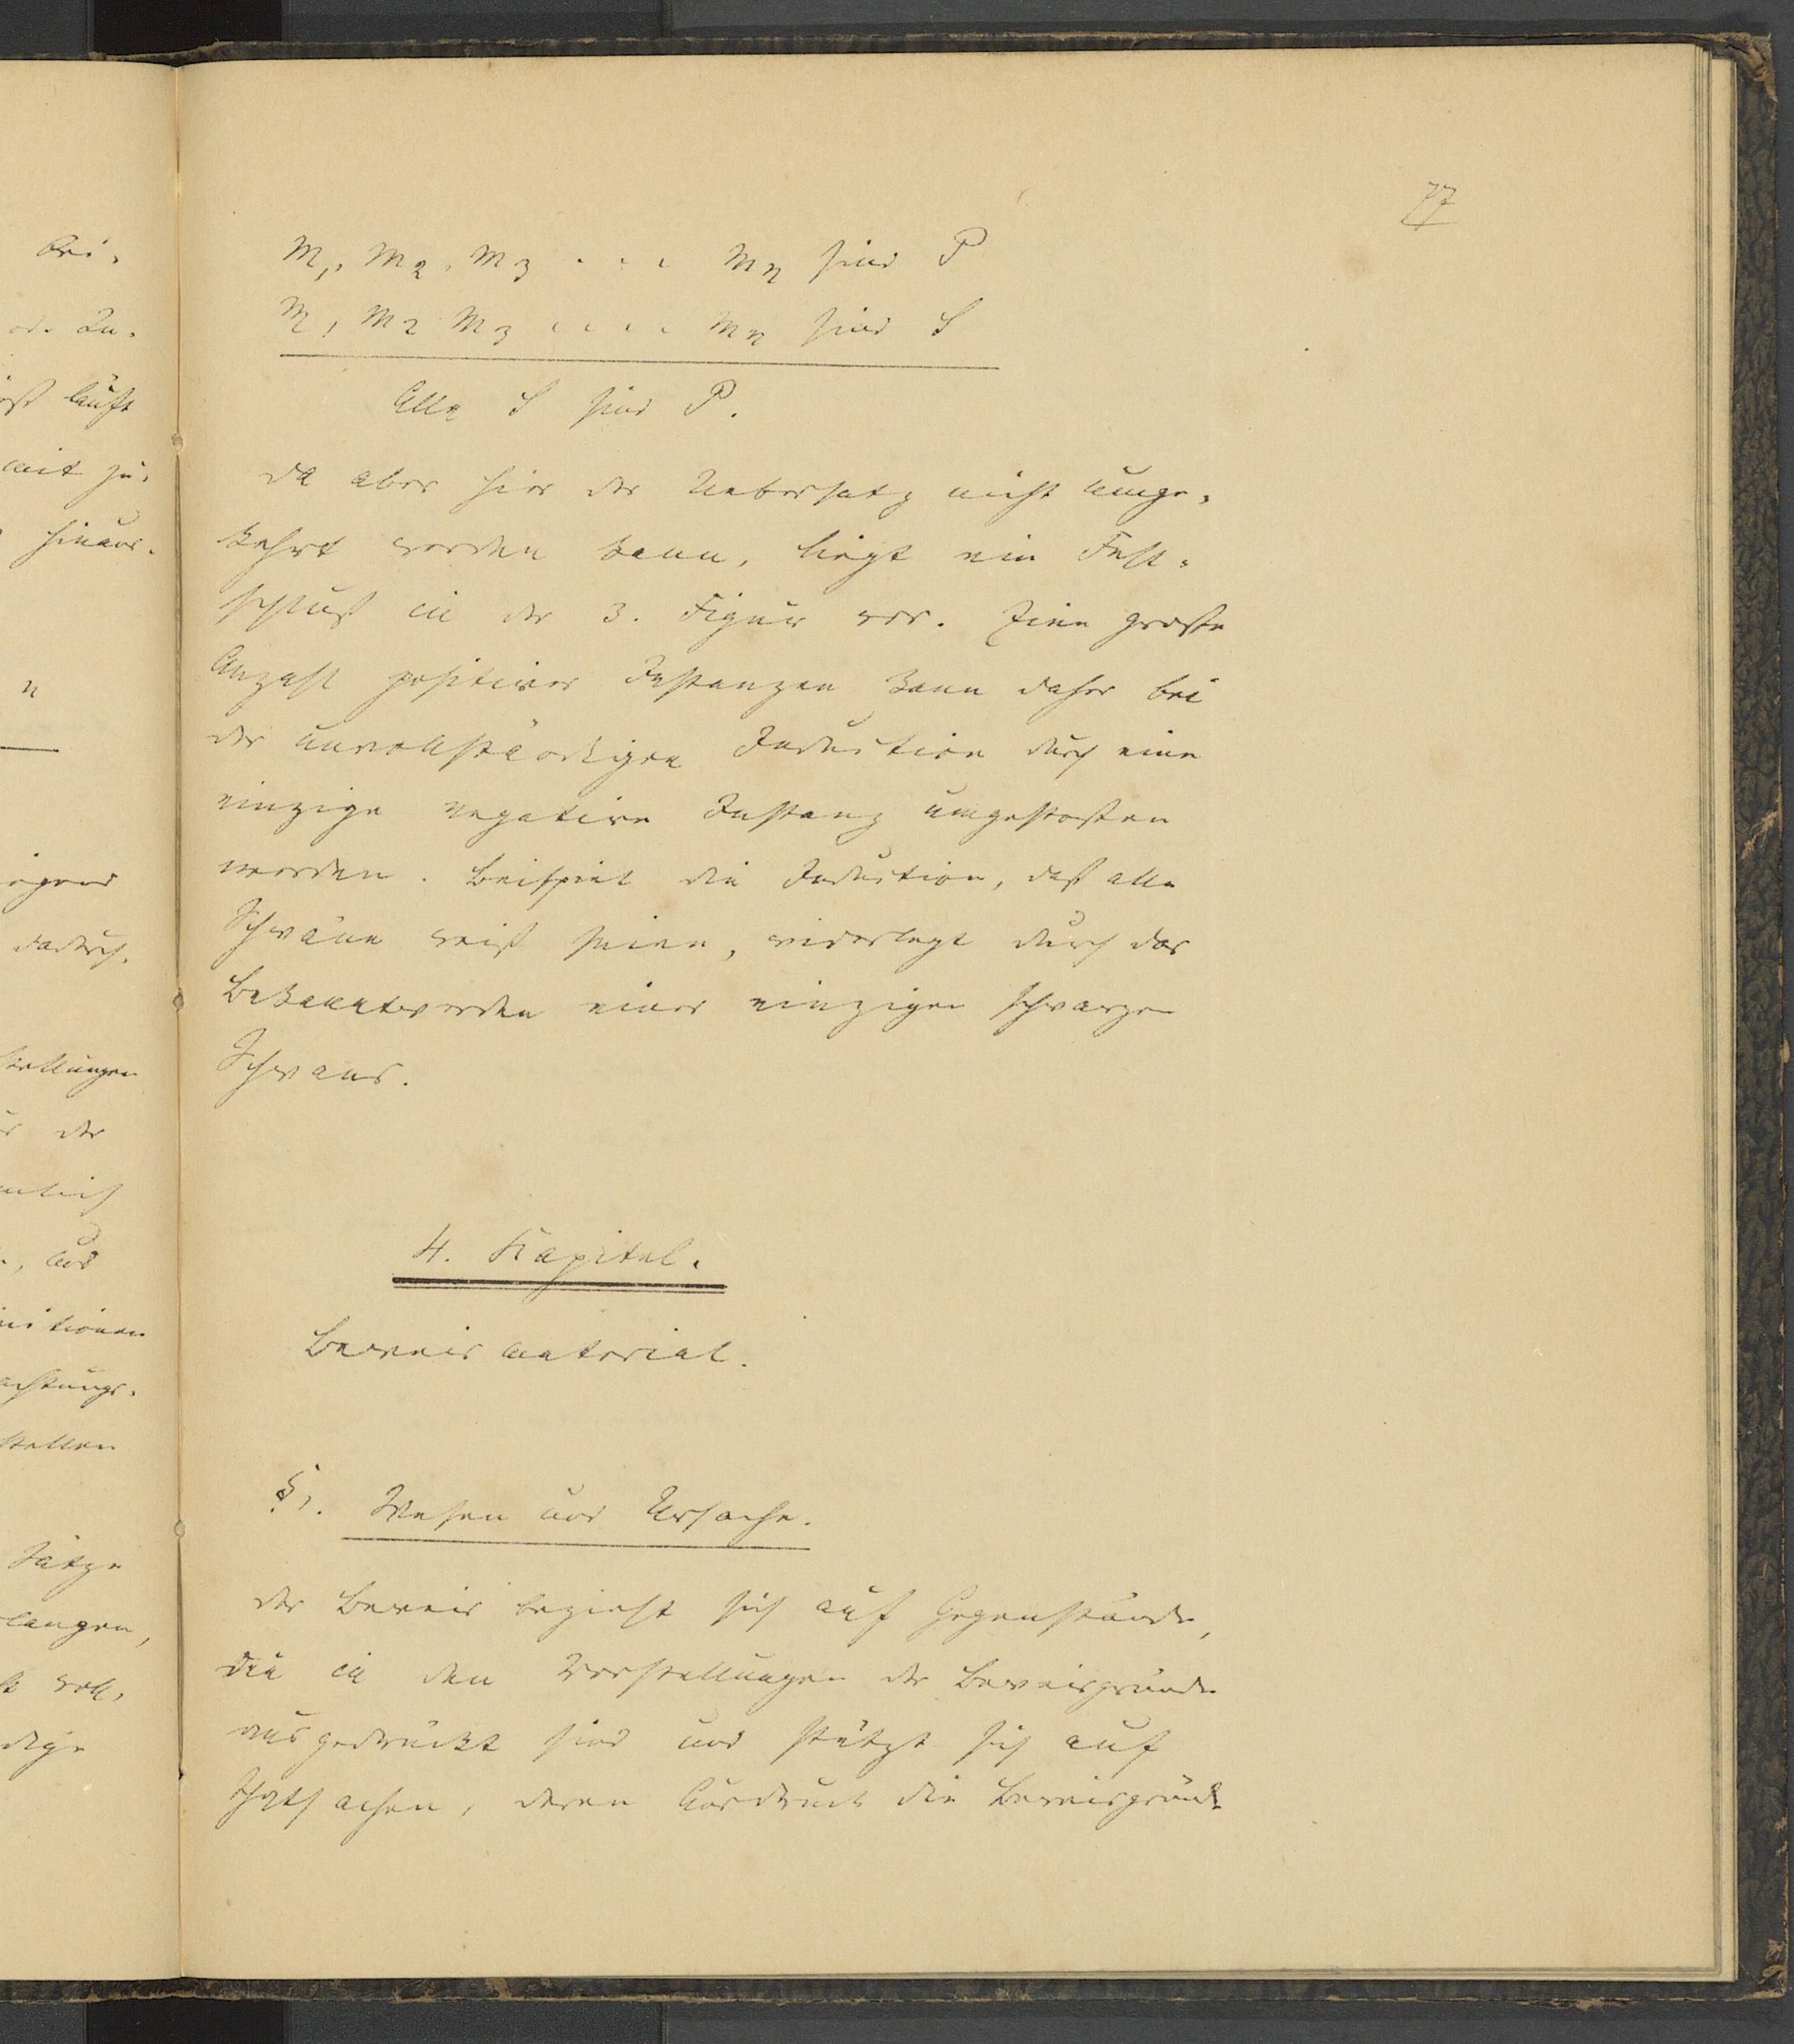 77
M1, M2, M3 . . . Mn sind P
M1 M2 M3 . . . . Mn sind S
Alle S sind P.
Da aber hier der Untersatz nicht umge-
kehrt werden kann, liegt ein Fehl-
schluß in der 3. Figur vor. Eine große
Anzahl positiver Instanzen kann daher bei
der unvollständigen Induction durch eine
einzige negative Instanz umgestoßen
werden. Beispiel die Induction, daß alle
Schwäne weiß seien, widerlegt durch das
Bekanntwerden eines einzigen schwarzen
Schwans.
4. Kapitel.
Beweismaterial.
§1. Wesen und Ursache.
Der Beweis bezieht sich auf Gegenstände,
die in den Vorstellungen der Beweisgründe
ausgedrückt sind und stützt sich auf
Thatsachen, deren Ausdruck die Beweisgründe
bei-
läuft
mit zu-
hinaus.
n
irgend
dadurch.
stellungen
der
, und
stellen
Sätze
langen,